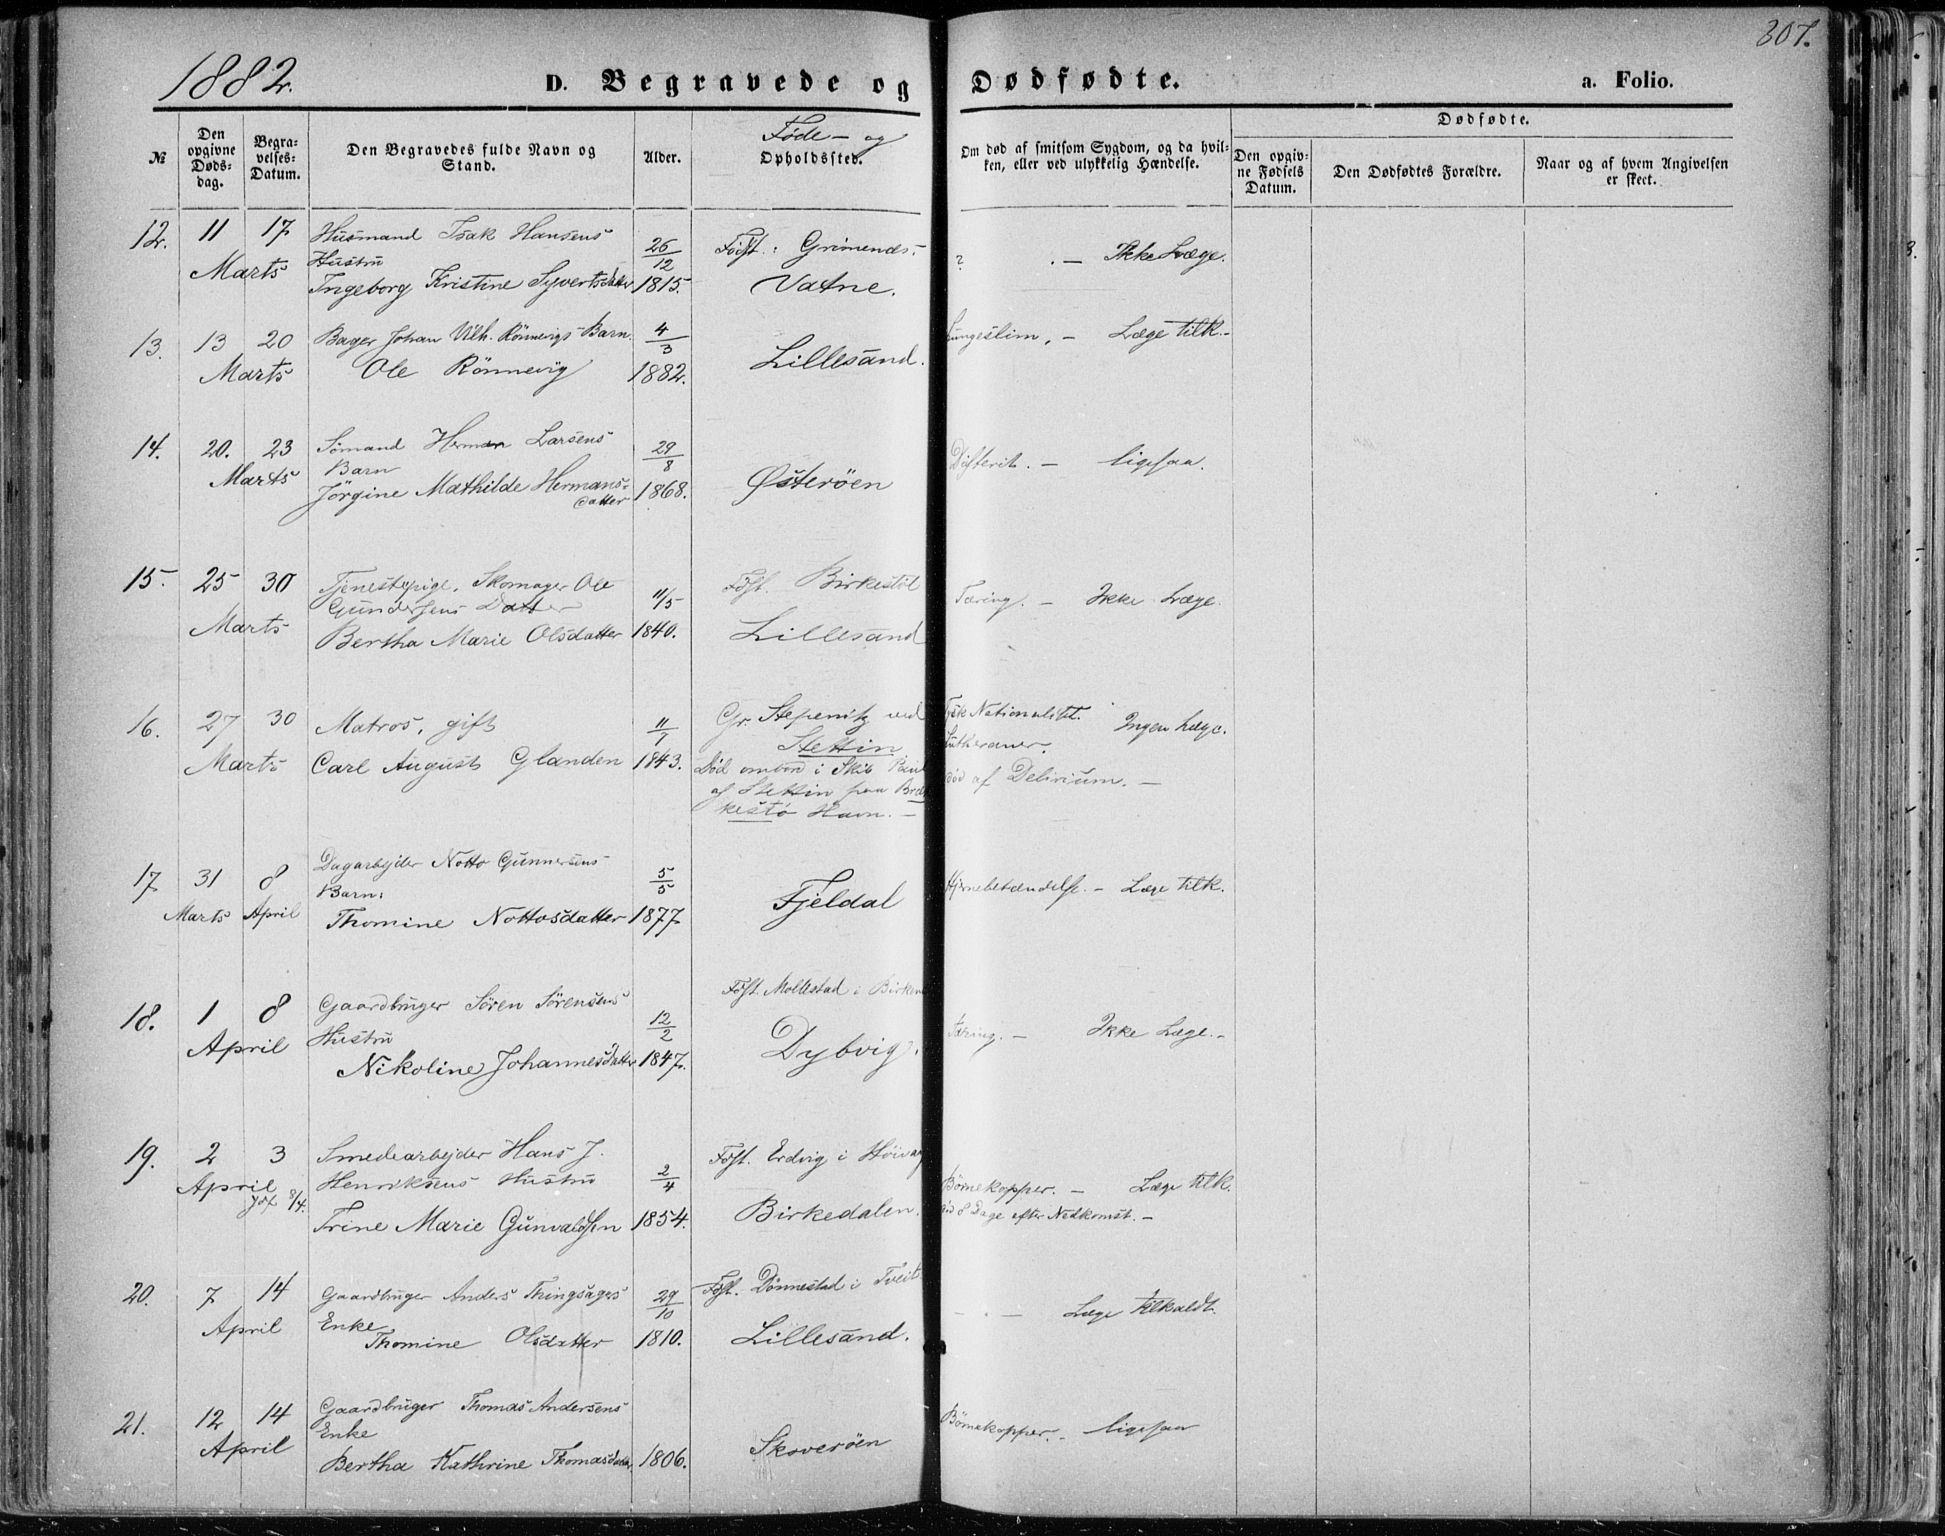 1882.
D. Begravede og Dødfødte.
a. Folio.
307.
№
Den opgivne Døds-dag.
Begra-velses-Datum.
Den Begravedes fulde Navn og Stand.
Alder.
Føde- og
Opholdssted.
Om død af smitsom Sygdom, og da hvil-ken, eller ved ulykkelig Hændelse.
Dødfødte.
Den opgiv-ne Fødsels Datum.
Den Dødfødtes Forældre.
Naar og af hvem Angivelsen er skeet.
12. 11 17 Husmand Isak Hansens 26/12 Føst: Grimends-
Marts Hustru ? . — Ikke Læge.
Ingeborg Kristine Syvertsdatter 1815. Vatne.
13. 13 20 Bager Johan Vilh. Rönnevigs Barn 4/3 Lungeslim. — Læge tilk.-
Marts Ole Rönnevig 1882. Lillesand.
14. 20. 23 Sömand Herman Larsens 29/8
Marts Barn Difterit. — ligesaa.
Jörgine Mathilde Hermans- 1868. Østeröen
datter
15. 25 30 Tjenestepige. Skomager Ole 11/5 Föst. Birkestöl
Gundersens Datter Tæring. — Ikke Læge.
Marts Bertha Marie Olsdatter 1840. Lillesand
16. 27 30 Matros, gift 11/7 Gr. Stepenitz ved
Stettin
Tysk Nationalitet. Ingen Læge.
Lutheraner.
Marts Carl August Glanden 1843. Død ombord i Skib
af Stettin paa
kestö Havn. —
død af Delirium. —
17 31 8 Dagarbejder Notto Gunnersens 5/5
Barn: Hjernebetændelse. — Læge tilk.
Marts April Thomine Nottosdatter 1877 Fjeldal
18. 1 8 Gaardbruger Sören Sörensens 12/2 Föst. Mollestad i
April Hustru Tæring. — Ikke Læge.-
Nikoline Johannesdatter 1847. Dybvig.
19. 2 3 Smedearbejder Hans J. 2/4 Föst. Erdvig i Höivag
April Henriksens Hustru Börnekopper. — Læge tilk.
Jdf. 8/4. Trine Marie Gunvaldsen 1854. Birkedalen.
død 8 Dage efter Nedkomst. —
20. 7 14 Gaardbruger Anders Thingsagers 29/10 Föst. Dönnestad i Tveit
April Enke — Læge tilkaldt.
Thomine Olsdatter 1810. Lillesand.
21. 12 14 Gaardbruger Thomas Andersens
April Enke Börnekopper. - ligesaa
Bertha Kathrine Thomasdatter 1806. Skoveröen